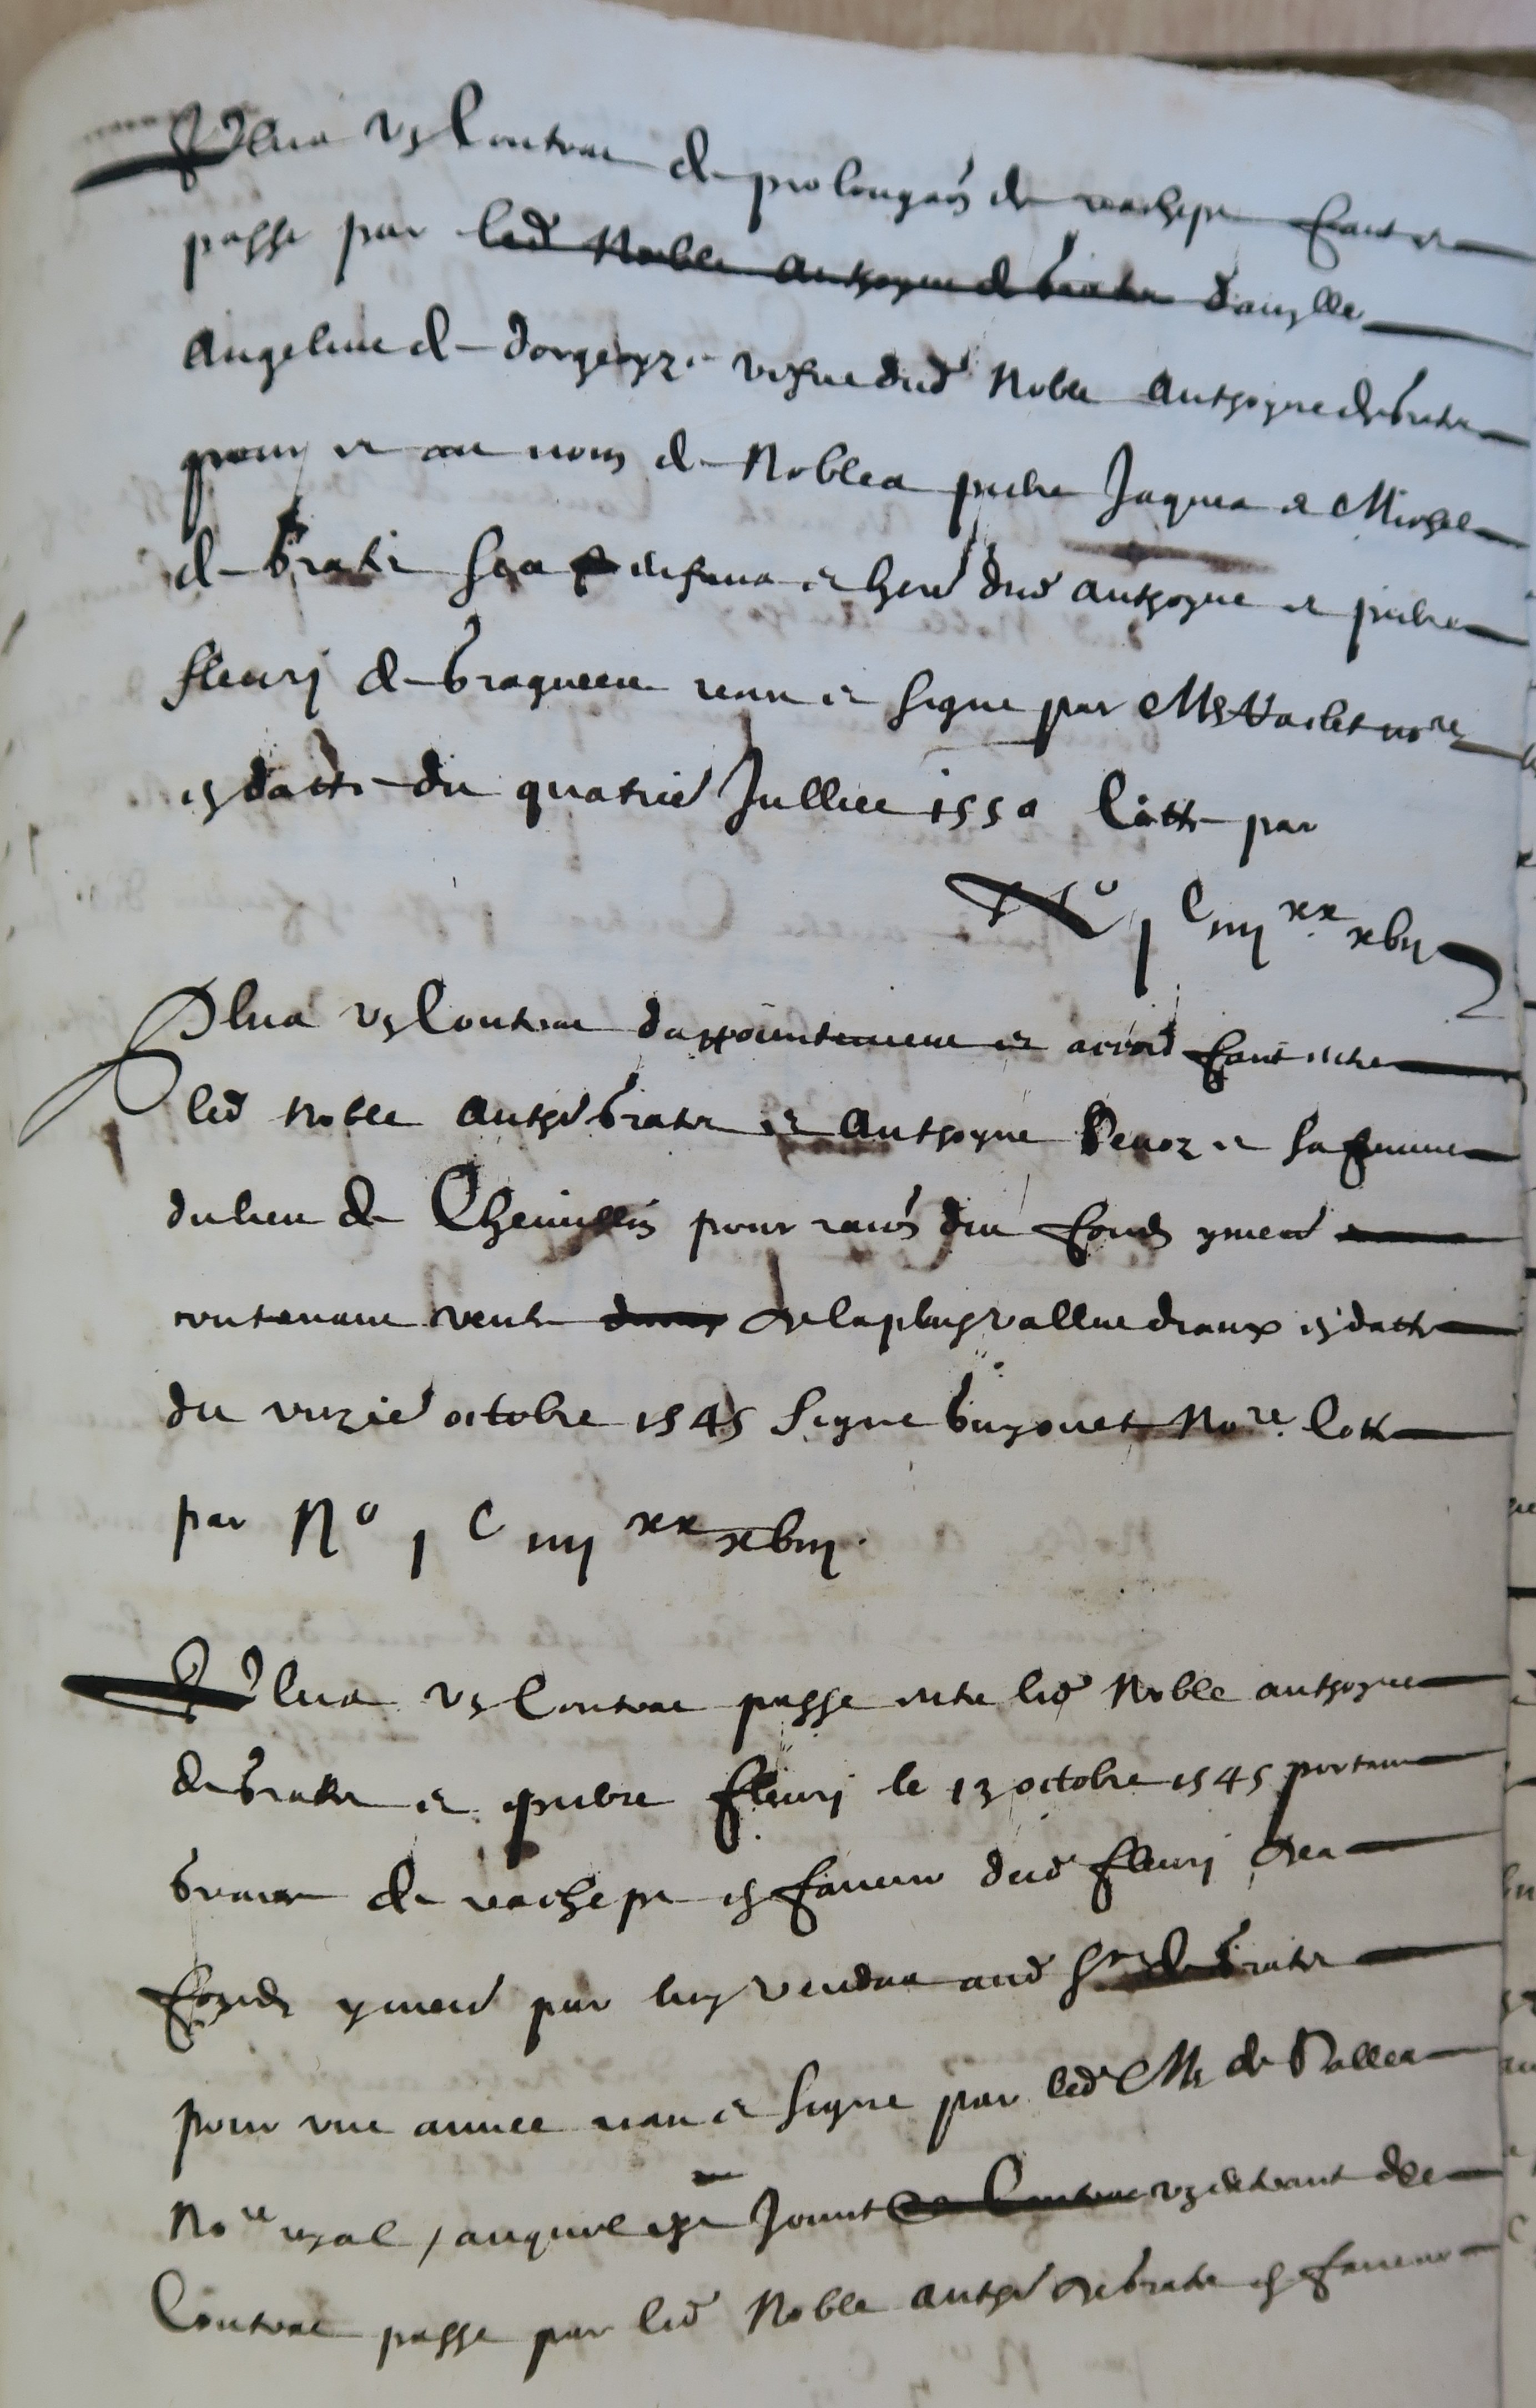 Plus ung Contrac de prolongaõn de rachept faict et
passe par led Noble anthoyne de brate damylle
Angeline de dorgeoyze vefue dud Noble Anthoyne de brate
pour et au nom de Nobles piebre Jaques et Michel
de brate ses enfans et herd dud anthoyne et piebre
fleuri de receu et signe par Me Vaclet nore
en datte du quatrie Julliet 1550 Cotte par
No j C iiij xx xvij
Plus ung Contrac dappointement et accord faict entre
led Noble Anthe brate et Anthoyne et sa femme
du lieu de pour raiõn du fondz ymeď
contenant vente de la plus vallue diceux en datte
du unzie octobre 1545 Signe Nore Cotte
par No j C iiij xx xviij.
Plus ung Contrac passe entre led Noble anthoyne
de brate et piebre fleuri le 13 octobre 1545 portant
grace de rachept en faveur dud fleuri des
fondz ymeď par luy vendus aud Sr de brate
pour une annee receu et signe par led Me de Salles
Nore royal / auquel est Joinct ung extraict de
Contrac passe par led Noble anthe de brate en faveur